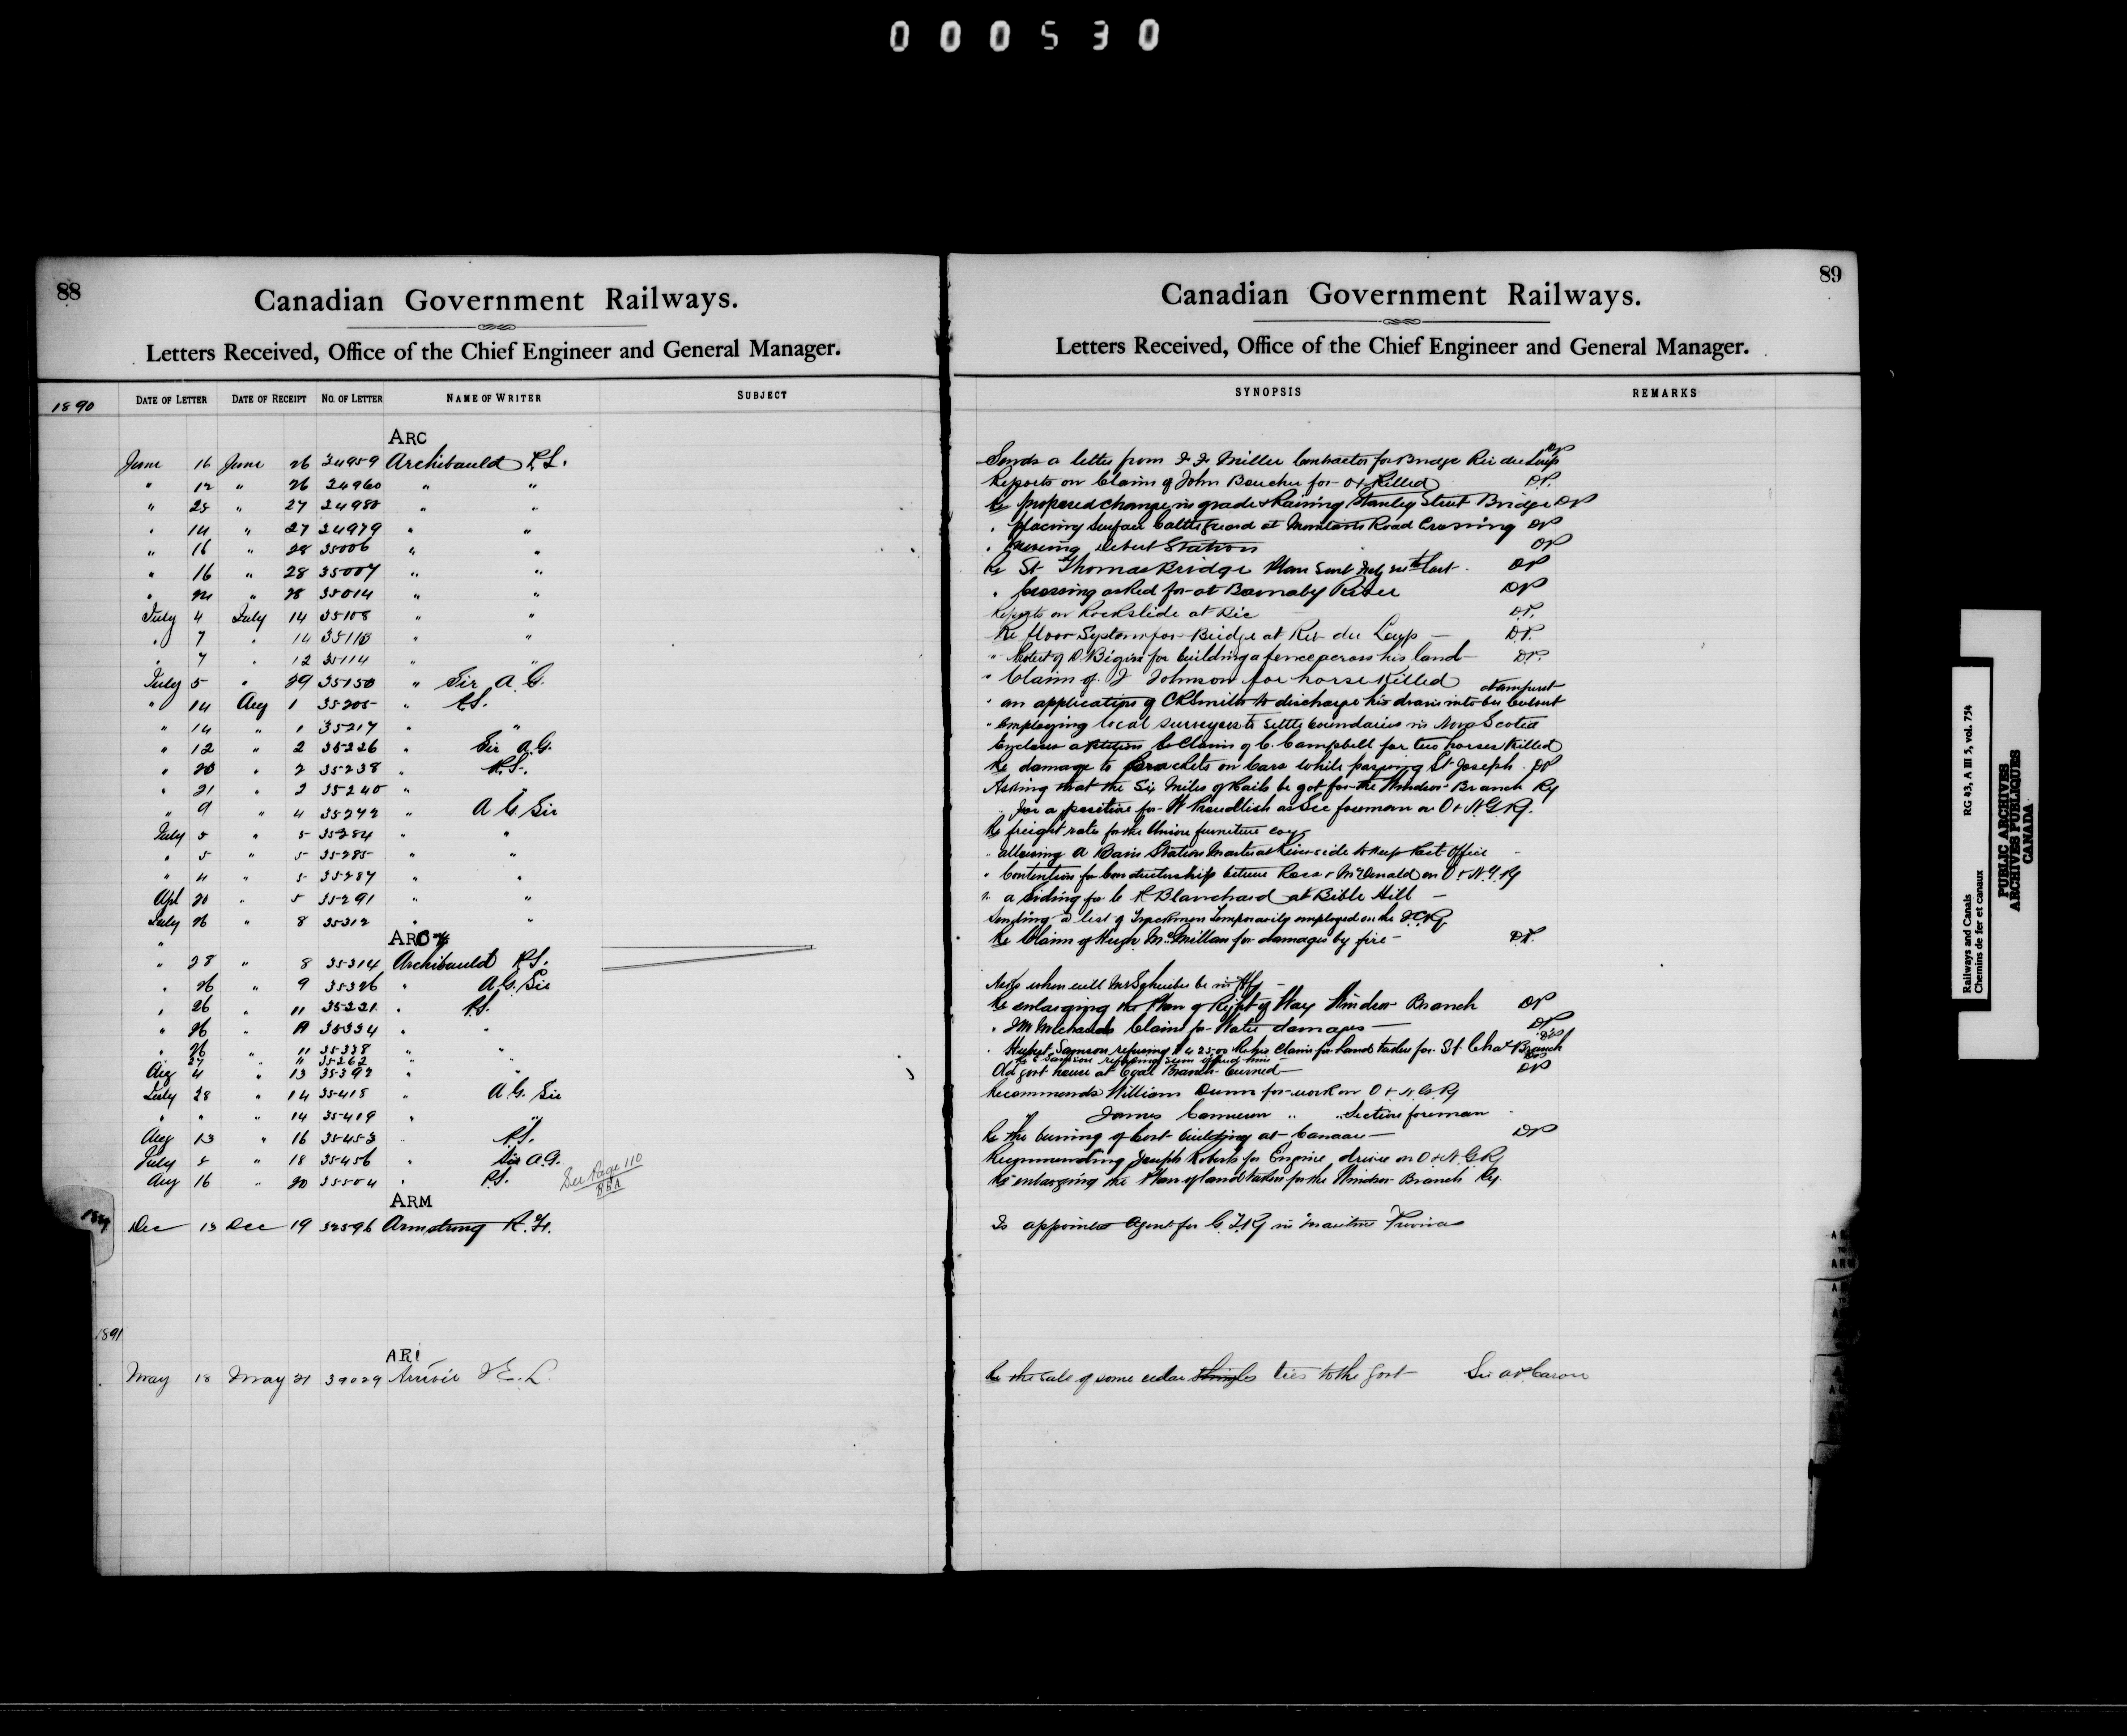 000530
88
Canadian Government Railways.
Letters Received, Office of the Chief Engineer and General Manager.
1890 DATE OF LETTER DATE OF RECEIPT NO. OF LETTER NAME OF WRITER SUBJECT
ARC
June 16 June 26 34959 Archibauld P.S.
" 12 " 26 34960 " "
" 25 " 27 34980 " "
" 14 " 27 34979 " "
" 16 " 28 35006 " "
" 16 " 28 35007 " "
" " 28 35014 " "
July 4 July 14 35108 " "
" 7 " 14 35110 " "
" 7 " 12 35114 " "
July 5 " 29 35150 " Sir A.G.
" 14 Aug 1 35205 " P.S.
" 14 " 1 35217 " "
" 12 " 2 35226 " Sir A.G.
" 20 " 2 35238 " P.S.
" 21 " 2 35240 " "
" 9 " 4 35272 " A G Sir
July 5 " 5 35284 " "
" 5 " 5 35285 " "
" 4 " 5 35287 " "
Apl 20 " 5 35291 " "
July 26 " 8 35312 " "
ARC
" 28 " 8 35314 Archibauld P.S.
" 26 " 9 35326 " A.G. Sir
" 26 " 11 35221 " P.S.
" 26 " 11 35334 " "
" 26 " 11 35338 " "
" 27 " 11 35262 " "
Aug 4 " 13 35392 " "
July 28 " 14 35418 " A.G. Sir
" " " 14 35419 " "
Aug 13 " 16 35453 P.S.
July 8 " 18 35456 " Sir A.G.
Aug 16 " 20 35504 " P.S. See Page 110
88A
ARM
Dec 13 Dec 19 32596 Armstrong R.F.
1891
ARI
May 18 May 21 39029
89
Canadian Government Railways.
Letters Received, Office of the Chief Engineer and General Manager.
SYNOPSIS REMARKS
Sends a letter from J.F. Miller Contractor for Bridge Riv du Loup DP
Reports on Claim of John Boucher for Ox Killed DP.
Re proposed change in grade & Raising Stanley Street Bridge DP
" placing Surface Cattleguard at Road Crossing DP
" moving Debert Station DP
Re St Thomas Bridge Plan Sent DP
" Crossing asked for at Barnaby River DP
Reports on Rockslide at Bic DP.
Re floor System for Bridge at Riv du Loup — DP.
" for building a fence across his land — DP.
" Claim of J Johnson for horse Killed
" an application of C R Smith to discharge his drain into culvert at Amherst
" Employing local surveyors to settle boundaries in Nova Scotia
Encloses a Petition Re Claim of C. Campbell for two horses Killed
Re damage to Brackets on Cars while passing St Joseph DP
Asking that the Six Miles of Rails be got for the Windsor Branch Ry
For a position for W as Sec foreman on O & N.G. Ry.
Re freight rates for the Union furniture coy
" allowing A Bain Station Master at Riverside to Keep Post Office
" Contention for Conductorship between Ross & McDonald on O & N.G. Ry
" a Siding for C R Blanchard at Bible Hill —
Sending a list of Trackmen Temporarily employed on the I.C.Ry
Re Claim of Hugh McMillan for damages by fire — DP.
Asks when will Mr Schreiber be in Hfx —
Re enlarging the Plan of Right of Way Windsor Branch DP
" Claim for Water damages — DP
" Hubert Samson refusing Re his Claim for Land taken for St. Chas Branch
Samson refusing sum offered him
Old Govt house at Branch burned — DP
Recommends William Dunn for work on O & N.G. Ry
" James Cameron " " Section foreman
Re the burning of Govt building at Canaan — DP
Recommending Joseph Roberts for Engine driver on O & N.G. Ry
Re enlarging the Plan of land taken for the Windsor Branch Ry.
Is appointed Agent for G.T.Ry in Maritime Provinces
Re the sale of some cedar shingles ties to the Govt Sir A P Caron
Railways and Canals RG 43, A III 5, vol. 754
Chemins de fer et canaux
PUBLIC ARCHIVES
ARCHIVES PUBLIQUES
CANADA